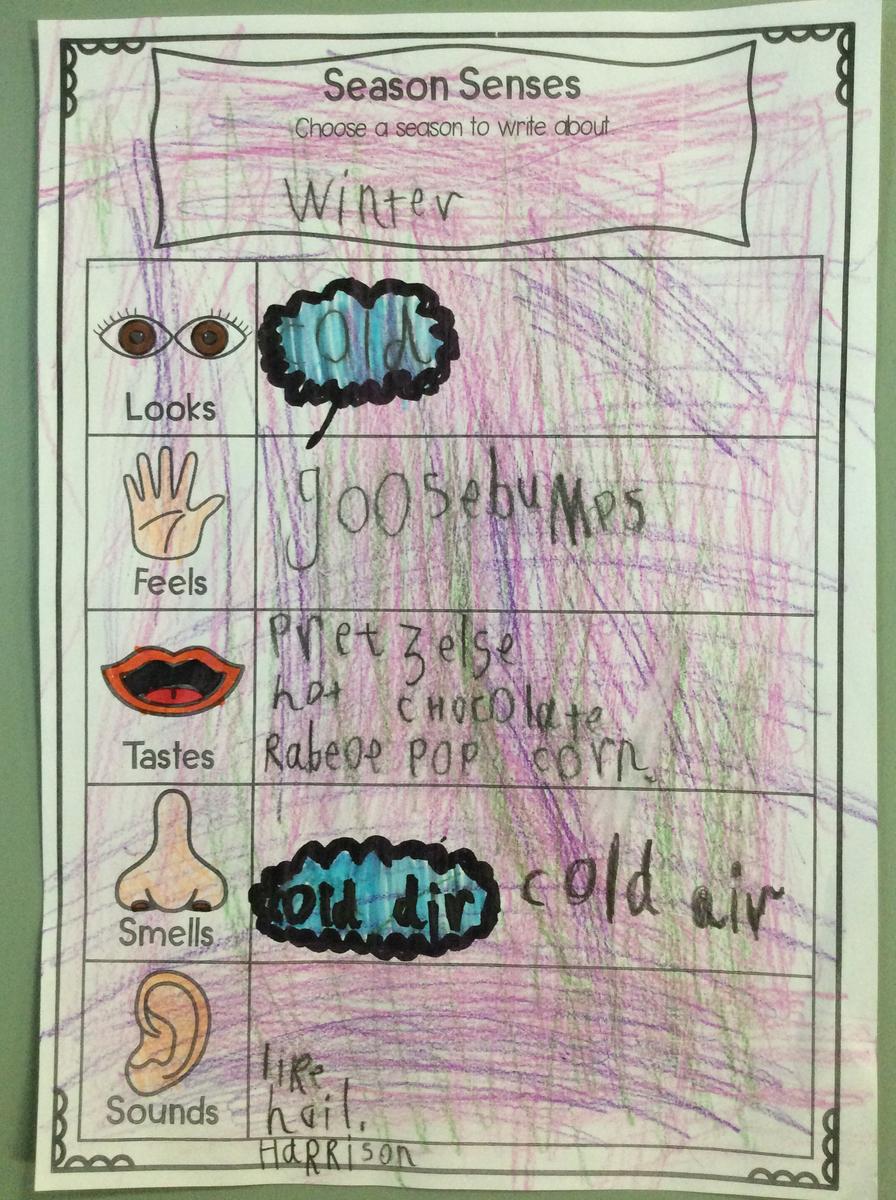 Season Senses
Choose a season to write about
Winter
Looks
cold
Feels
goosebumps
Tastes
Pretzelse
hot cHocolate
Rabeoe POP corn.
Smells
cold air cold air
Sounds
liKe
hail.
HaRRison